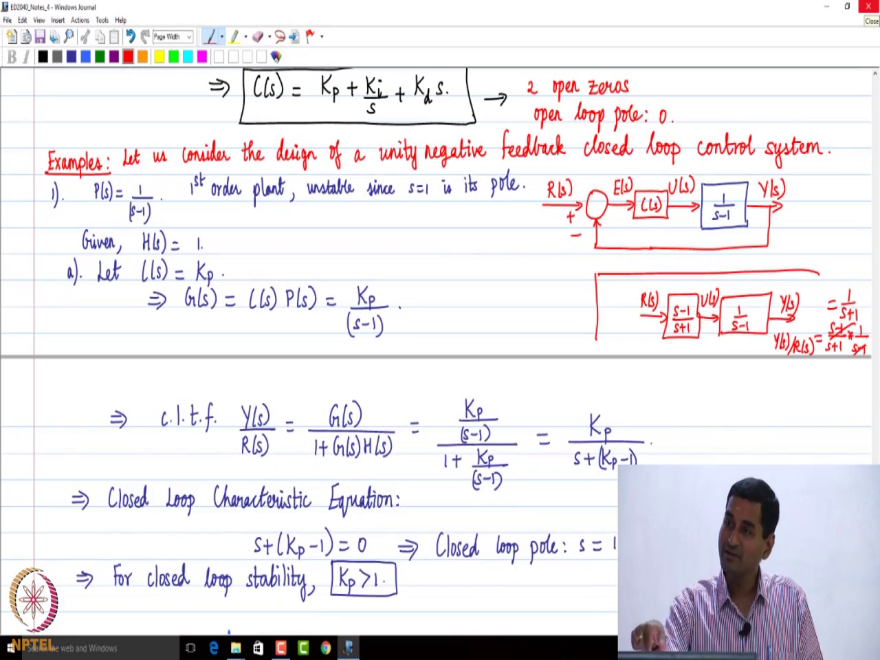 ED2040_Notes_4 - Windows Journal
Close
File Edit View Insert Actions Tools Help
Page Width
B I
⇒ C(s) = Kp + Ki/s + Kd s. → 2 open zeros
open loop pole: 0.
Examples: Let us consider the design of a unity negative feedback closed loop control system.
1). P(s) = 1/(s-1) . 1st order plant, unstable since s=1 is its pole.
R(s) + - E(s) C(s) U(s) 1/(s-1) Y(s)
Given, H(s) = 1.
a). Let C(s) = Kp.
⇒ G(s) = C(s) P(s) = Kp/(s-1) .
R(s) (s-1)/(s+1) U(s) 1/(s-1) Y(s) = 1/(s+1)
Y(s)/R(s) = (s-1)/(s+1) * 1/(s-1)
⇒ c.l.t.f. Y(s)/R(s) = G(s)/(1+G(s)H(s)) = (Kp/(s-1))/(1 + Kp/(s-1)) = Kp/(s+(Kp-1)) .
⇒ Closed Loop Characteristic Equation:
s+(Kp-1) = 0 ⇒ Closed loop pole: s = 1
⇒ For closed loop stability, Kp > 1.
NPTEL
the web and Windows